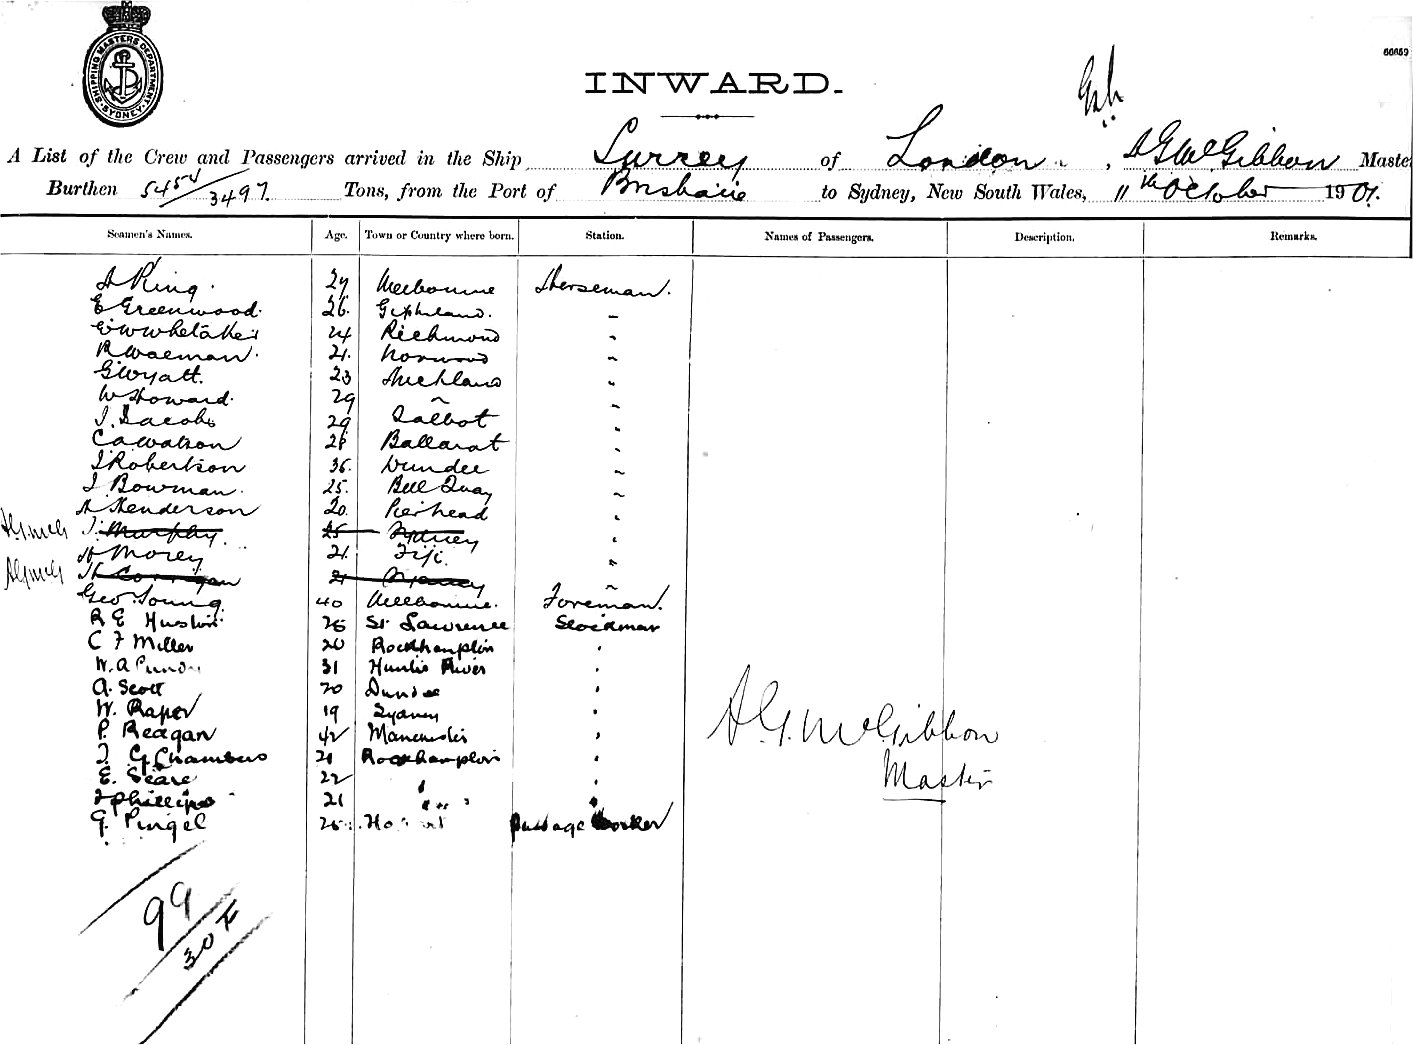 SHIPPING MASTERS DEPARTMENT. SYDNEY.
66659
INWARD.
A List of the Crew and Passengers arrived in the Ship Surrey of London, A G McGibbon Maste
Burthen 5454/3497. Tons, from the Port of Brisbane to Sydney, New South Wales, 11th October 1901.
Seamen's Names. Age. Town or Country where born. Station. Names of Passengers. Description. Remarks.
A King. 27 Melbourne Horseman.
E Greenwood. 26. Gippsland. "
E W Whetaker 24 Richmond "
R Waeman. 21. Norwood "
G Wyatt. 23 Auckland "
W Howard. 29 " "
J. Jacobs 29 Talbot "
C A Watson 28 Ballarat "
J Robertson 36. Dundee "
J Bowman. 25. Bell Quay "
A Henderson 20. Pierhead "
A.G.McG J. Murphy. 25 Sydney "
H Morey 21. Fiji. "
A.G.McG H Corrigan 21 Sydney "
Geo. Young. 40 Melbourne. Foreman.
R E 26 St Lawrence Stockman
C F Miller 20 Rockhampton "
W. A 31 Hunter River "
A. Scott 20 Dundee "
W. Raper 19 Sydney "
P. Reagan 42 Manchester "
J. G Chambers 21 Rockhampton "
E. Seare 22 " "
J Phillips 21 " " "
G. Pingel 25 Hobart Passage Worker
A. G. McGibbon
Master
99
30 F